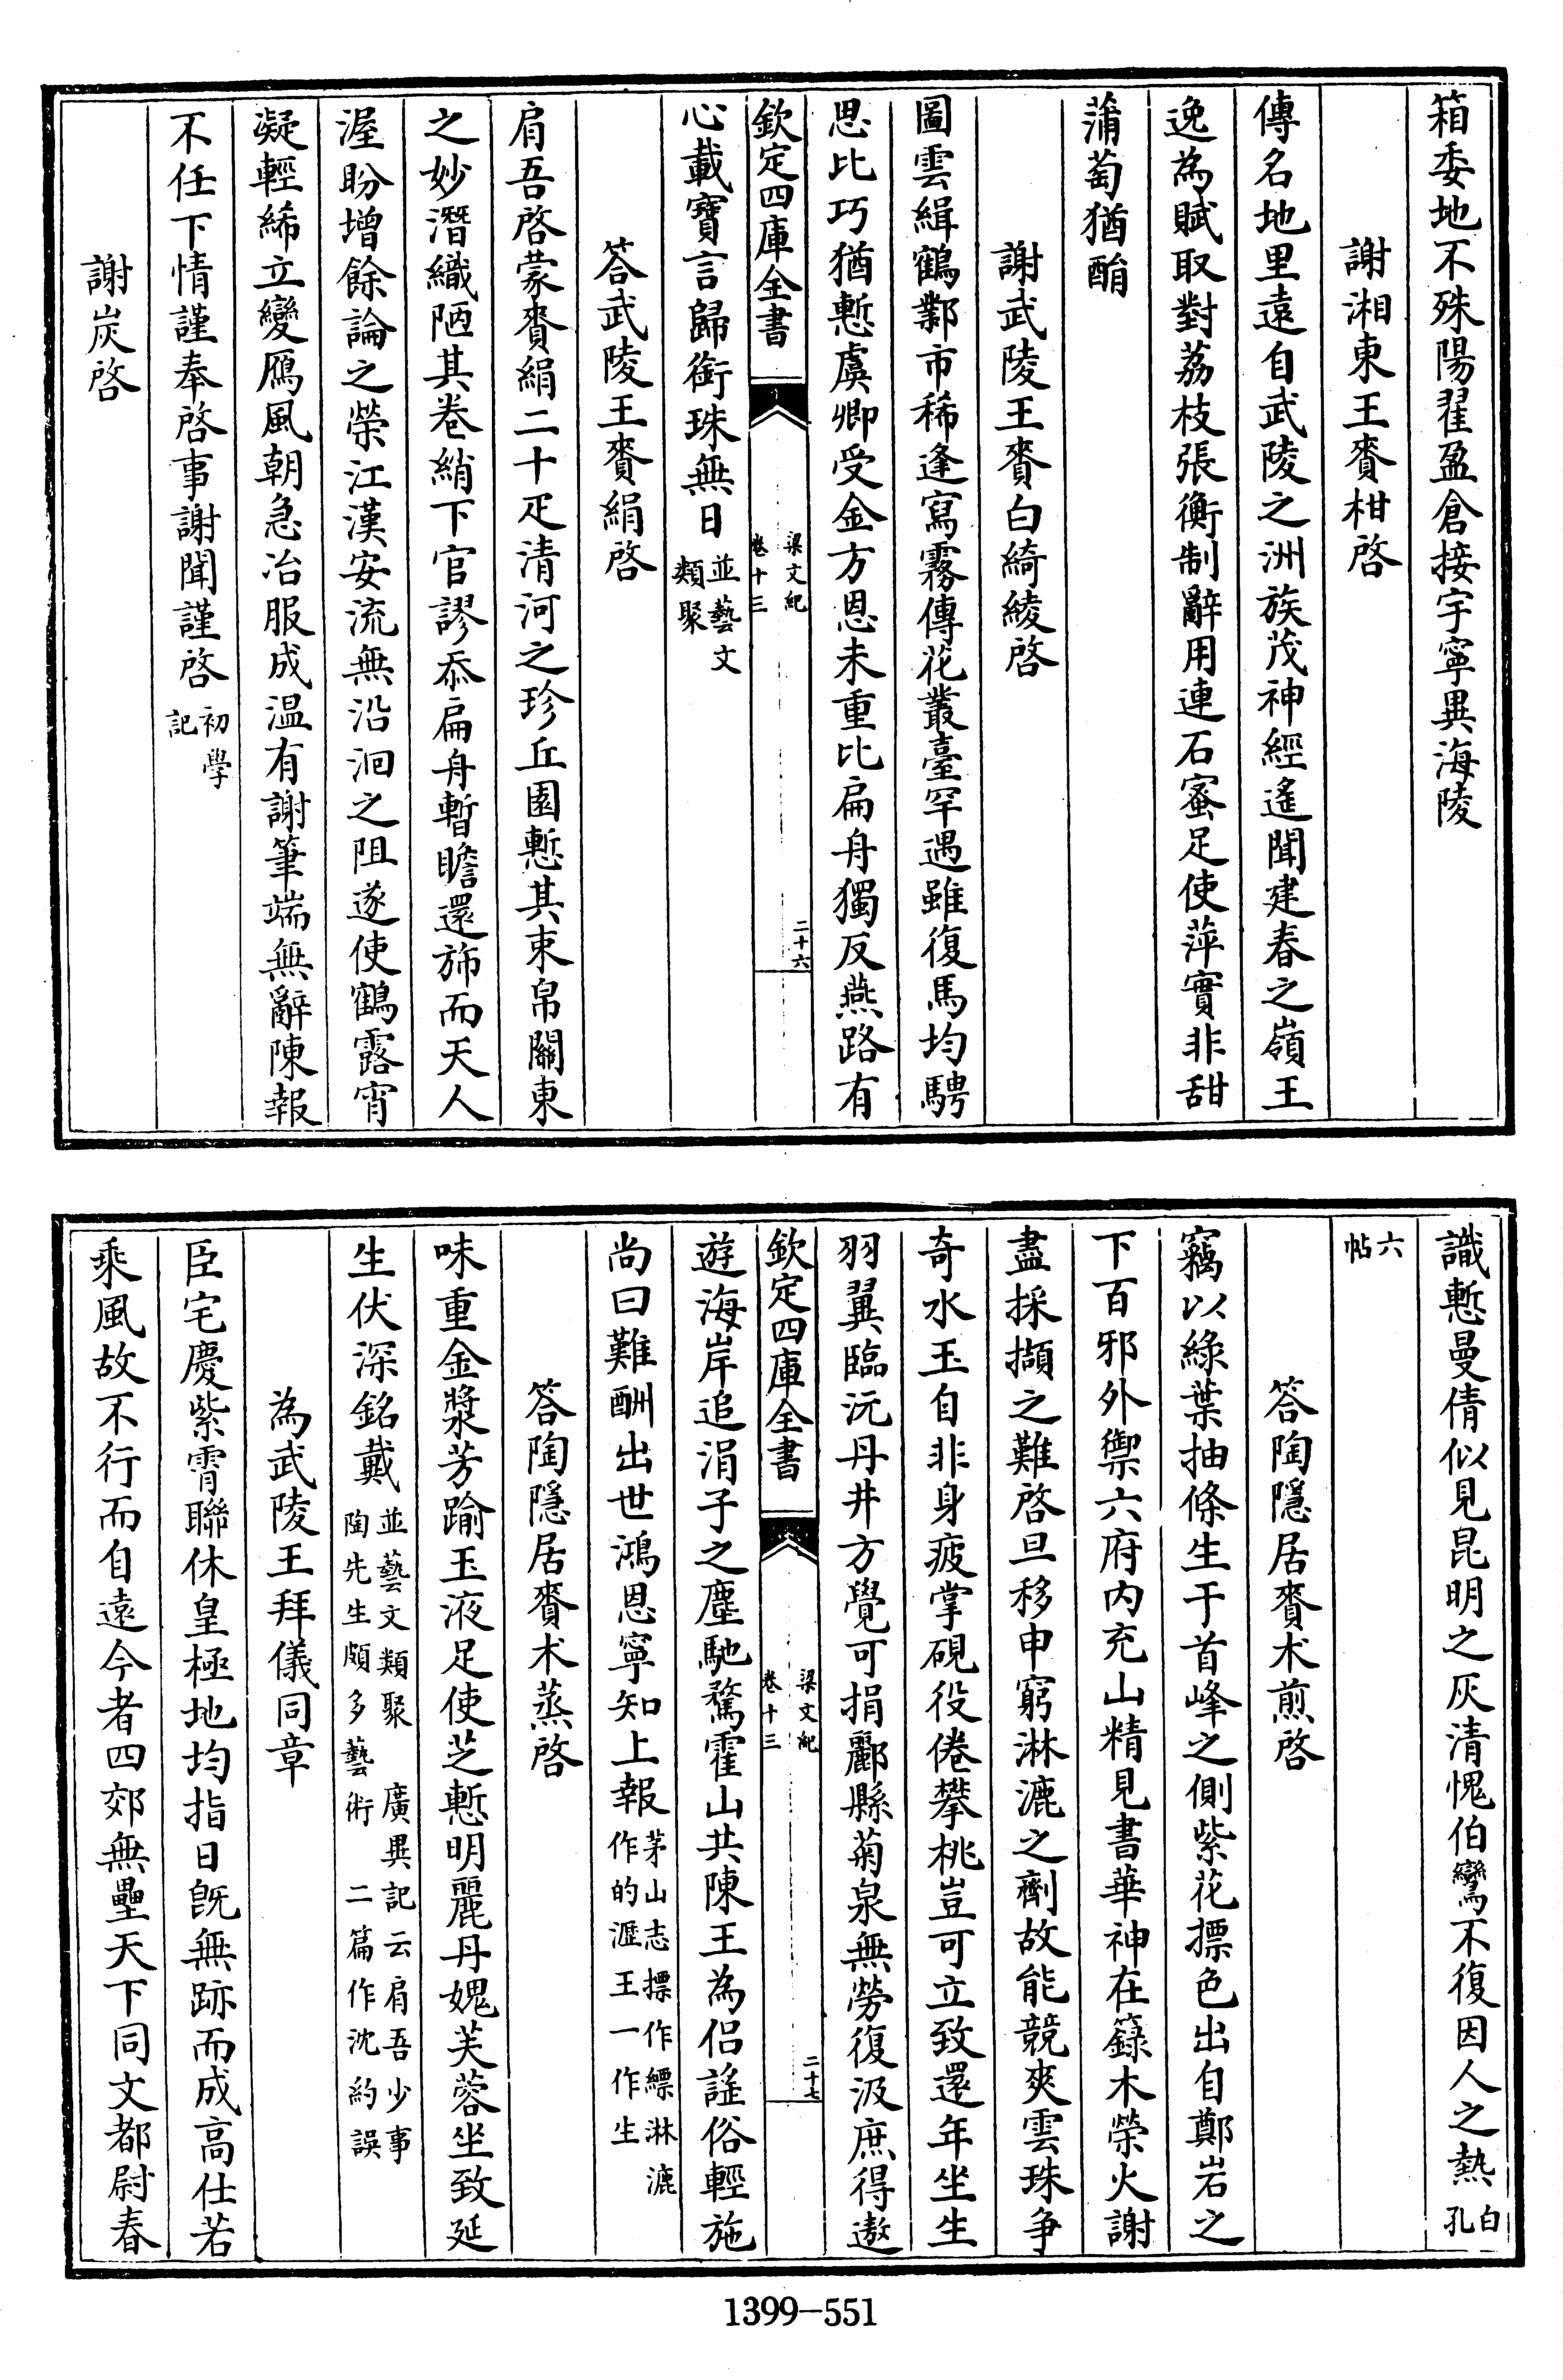 箱委地不殊陽翟盈倉接宇寧異海陵
謝湘東王賚柑啓
傳名地里遠自武陵之洲族茂神經遙聞建春之嶺王
逸為賦取對荔枝張衡制辭用連石蜜足使萍實非甜
蒲萄猶酳
謝武陵王賚白綺綾啓
圖雲緝鶴鄴市稀逢寫霧傳花叢臺罕遇雖復馬均騁
思比巧猶慙虞卿受金方恩未重比扁舟獨反燕路有
欽定四庫全書
梁文紀
卷十三
二十六
心載寶言歸銜珠無日並藝文
類聚
答武陵王賚絹啓
肩吾啓蒙賚絹二十疋清河之珍丘園慙其束帛關東
之妙潛織陋其卷綃下官謬忝扁舟暫瞻還斾而天人
渥盼增餘論之榮江漢安流無沿洄之阻遂使鶴露宵
凝輕絺立變鴈風朝急冶服成温有謝筆端無辭陳報
不任下情謹奉啓事謝聞謹啓初學
記
謝炭啓
識慙曼倩似見昆明之灰清愧伯鸞不復因人之熱白
孔
六
帖
答陶隱居賚术煎啓
竊以綠葉抽條生于首峰之側紫花摽色出自鄭岩之
下百邪外禦六府内充山精見書華神在籙木榮火謝
盡採擷之難啓旦移申窮淋漉之劑故能競爽雲珠争
奇水玉自非身疲掌硯役倦攀桃豈可立致還年坐生
羽翼臨沅丹井方覺可捐酈縣菊泉無勞復汲庶得遨
欽定四庫全書
梁文紀
卷十三
二十七
遊海岸追涓子之塵馳騖霍山共陳王為侣謡俗輕施
尚曰難酬出世鴻恩寧知上報茅山志摽作縹淋漉
作的瀝王一作生
答陶隱居賚术蒸啓
味重金漿芳踰玉液足使芝慙明麗丹媿芙蓉坐致延
生伏深銘戴並藝文類聚　廣異記云肩吾少事
陶先生頗多藝術　二篇作沈約誤
為武陵王拜儀同章
臣宅慶紫霄聯休皇極地均指日既無跡而成高仕若
乘風故不行而自遠今者四郊無壘天下同文都尉春
1399-551